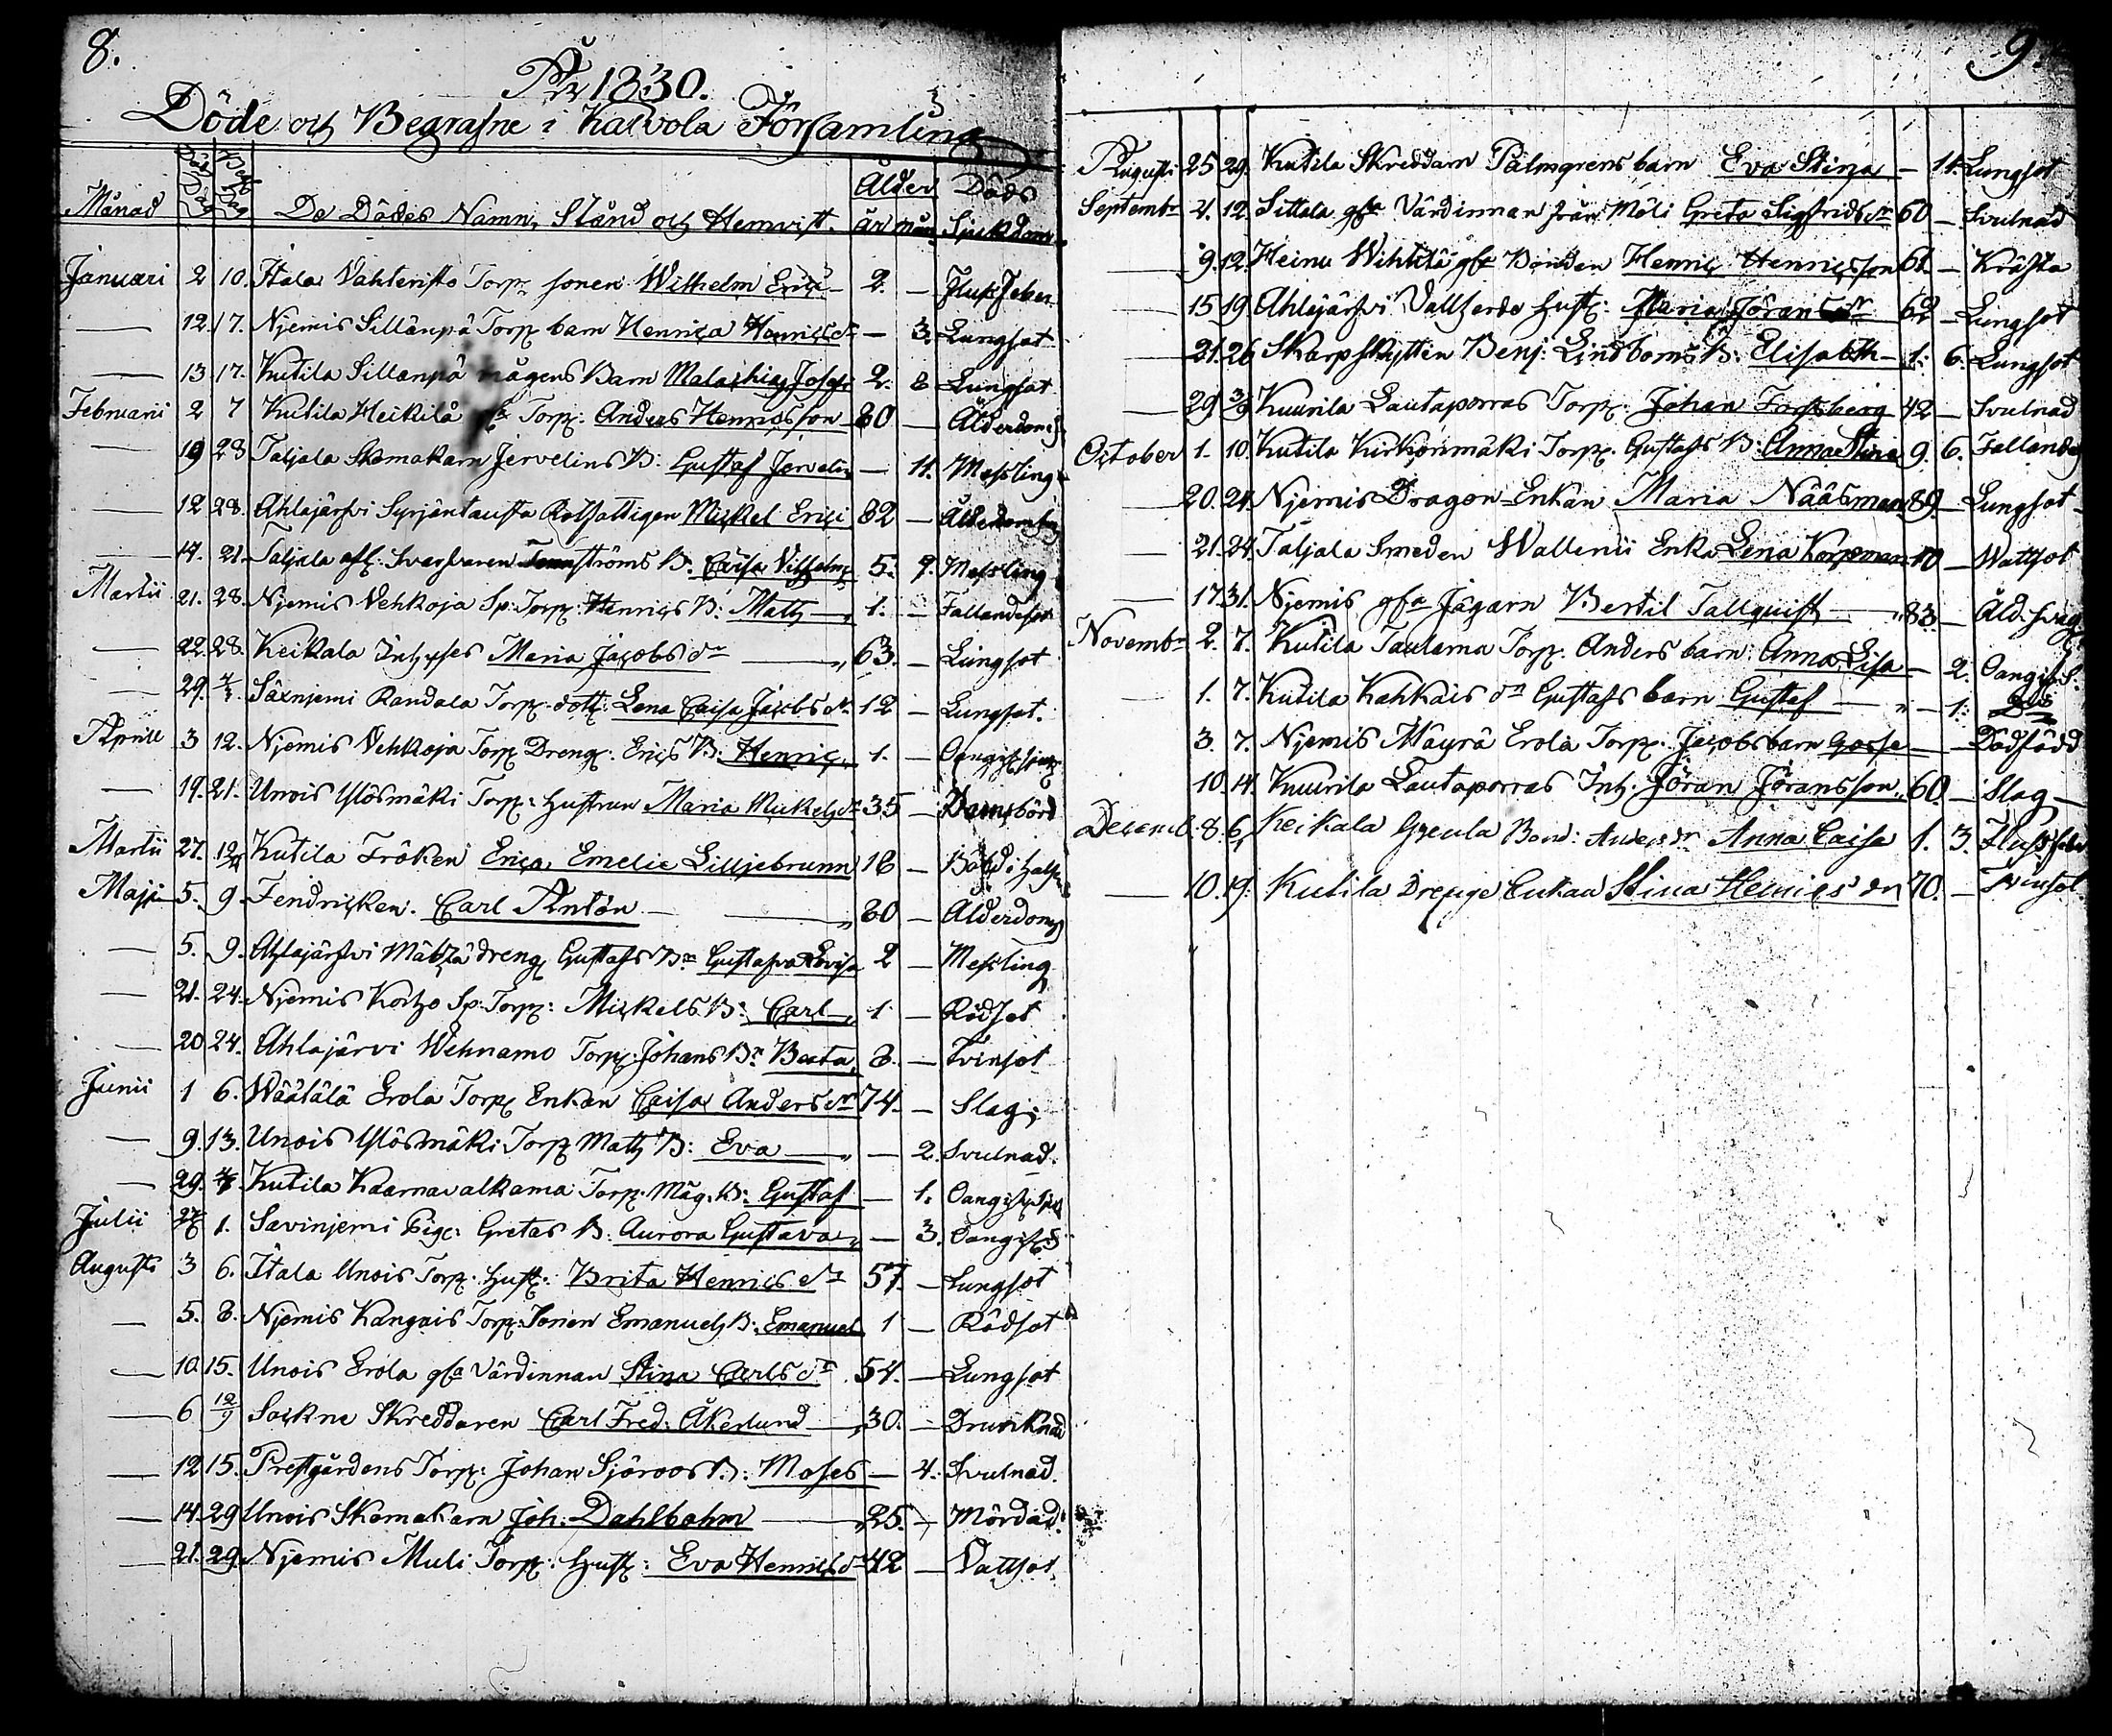 8.
År 1830.
Döde och Begrafne i Kalvola Församling
Månad Död Dag Begr Dag De Dödes Namn, Stånd och Hemvist. Ålder år mån Döds Sjukdom
Januari 2 10. Itala Vahteristo Torp. sonen Wilhelm Erici 2. — Flussfeber
— 12. 17. Njemis Sillanpä Torp barn Henrica Henricsdr — 3. Lungsot
— 13 17. Kutila Sillanpä mågens Barn Malachias Josefs 2. 8 Lungsot
Februarii 2 7 Kutila Heikilä Torp: Anders Henricsson 80 — Ålderdoms
— 19 28 Taljala Skomakarn Jervelins B: Gustaf Jervelin — 11. Messling
— 12 28. Ahlajärfvi Syrjäntausta Rotfattigen Mickel Erici 82 — Ålderdoms
— 14. 21. Taljala afl: Svarfvaren Tennströms B. Caisa Vilhelm 5. 9. Messling
Martii 21. 28. Njemis Vehkoja Sp: Torp: Henrics B: Matts 1. — Fallandesot
— 22. 28. Keikala Inhyses Maria Jacobs dr 63. — Lungsot
— 29. 4/4 Säxnjemi Randala Torp. dott: Lena Caisa Jacobs dr 12 — Lungsot.
Aprill 3 12. Njemis Vehkoja Torp Dreng: Erics B: Henric 1. — Oangifsjuk
— 19. 21. Unois Ylösmäki Torp: hustrun Maria Mickelsdr 35 — Barnsbörd
Martii 27. 12/4 Kutila Fröken Erica Emelie Lilljebrunn 18 — Böld i halsen
Maji 5. 9. Fendricken. Carl Antôn — 80 — Alderdoms
— 5. 9. Ahlajärfvi Mäkilä dreng Gustafs Bn Gustafva Lovisa 2 — Messling
— 21. 24. Njemis Kortzo Sp: Torp: Mickels B: Carl 1 — Rödsot
— 20 24. Ahlajärvi Wehnamo Torp: Johans Bn Beata 8. — Tvinsot
Junii 1 6. Wäätälä Erola Torp Enkan Caisa Anders dr 74. — Slag
— 9. 13. Unois Ylösmäki Torp Matts B: Eva — 2. Svulnad.
— 29. 4/7 Kutila Kaarnavalkama Torp. Måg. B: Gustaf — 1. Oangifsjuk
Julii 27/6 1. Savinjemi Pig: Gretas B: Aurora Gustava — 3. Oangif. S
Augusti 3 6. Itala Unois Torp. hust: Brita Henrics dr 57. — Lungsot
— 5. 8. Njemis Kangais Torp: Sonen Emanuels B: Emanuel 1 — Rödsot
— 10 15. Unois Erola gfa Värdinnan Stina Carls dr 54. — Lungsot
— 6 12/9 Sockne Skreddaren Carl Fred: Åkerlund 30. — Drunknad
— 12 15. Prestgårdens Torp: Johan Sjöroos B: Moses — 4. Svulnad.
— 14. 29 Unois Skomakarn Joh: Dahlbohm 25. — Mördad
— 21. 29. Njemis Muli Torp: hust: Eva Henrics dr 42 — Vattsot
9.
Augusti 25 29. Kutila Skreddarn Palmgrens barn Eva Stina — 11. Lungsot
Septembr 4. 12 Sittala gfa Värdinnan från Möli Greta Sigfrids dr 60 — Svulnad
— 9. 12. Heinu Wihtilä gfa Bonden Henric Henricsson 61. — Kräfta
— 15 19 Ahlajärfvi Vallherde hust: Maria Jörans dr 62 — Lungsot
— 21. 26 Skarpskytten Benj: Lindboms B: Elisabeth 1. 6. Lungsot
— 29 3/9 Kuurila Lautaporras Torp: Johan Forsberg 42 — Svulnad
October 1. 10. Kutila Kirkonmäki Torp: Gustafs B: Anna Stina 9. 6. Fallande
— 20. 24. Njemis Dragon-Enkan Maria Nääsman 89. — Lungsot
— 21. 24. Taljala Smeden Wallenii Enka Lena Korpeman 70 — Wattsot
— 17. 31. Njemis gfa Jägarn Bertil Tallquist 83. — Åld. svag
Novembr 2. 7. Kutila Taulama Torp. Anders barn: Anna Lisa — 2. Oangif. S.
— 1. 7. Kutila Kahkais dr Gustafs barn Gustaf — 1.
3. 7. Njemis Mäyrä Erola Torp: Jacobs barn Gosse — Dödfödd
10. 14. Kuurila Lautaporras Inh: Jöran Jöransson 60. — Slag
Decemb. 8. 6 Keikala Bond: Anders dr Anna Caisa 1. 3. Flussfeber
— 10. 19. Kutila Drenge Enkan Stina Henrics dr 70. — Tvinsot